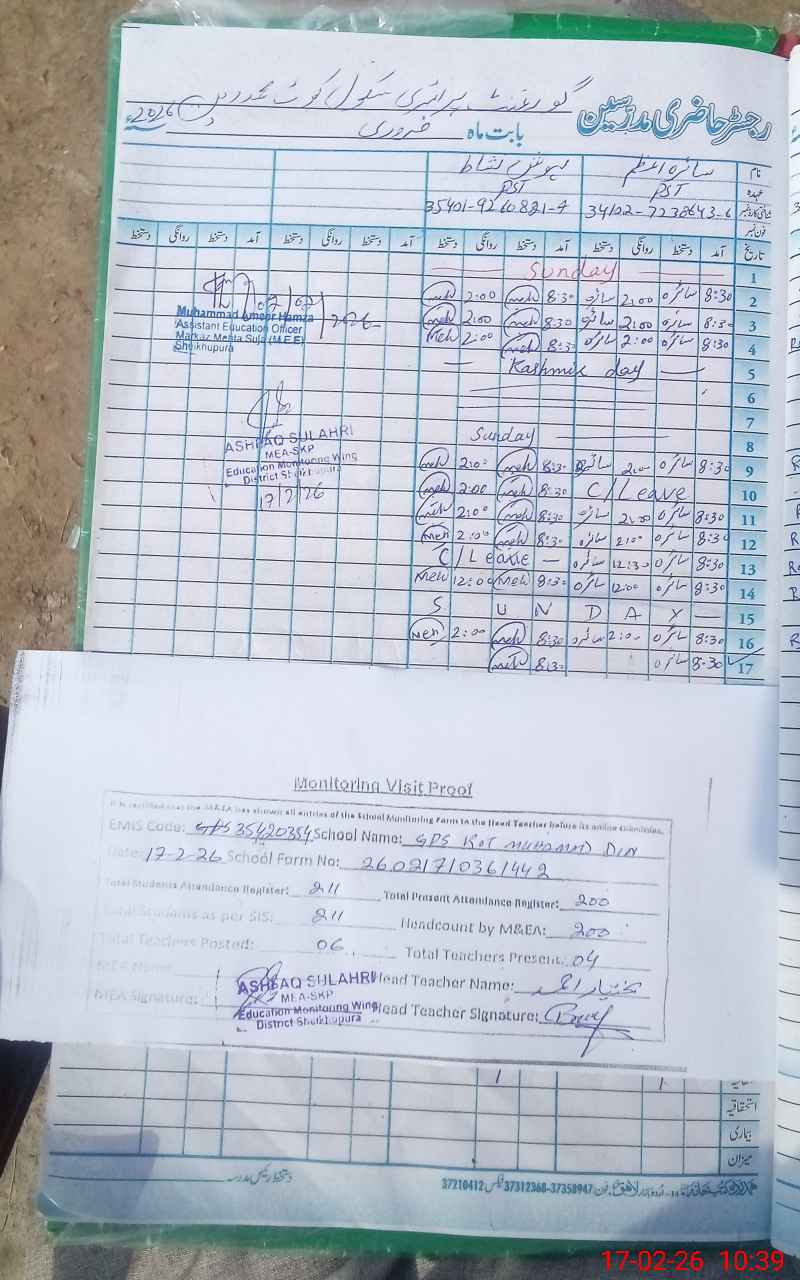 رجسٹر حاضری مدرسین گورنمنٹ پرائمری سکول کوٹ محمد دین
بابت ماہ فروری 2026ء
نام سائرہ اعظم
عہدہ PST PST
شناختی کارڈ نمبر 34102-7238643-6 35401-9260821-4
فون نمبر
تاریخ آمد دستخط روانگی دستخط آمد دستخط روانگی دستخط آمد دستخط روانگی دستخط آمد دستخط روانگی دستخط
1 Sunday
2 8:30 سائرہ 2:00 سائرہ 8:30 meh 2:00 meh
3 8:30 سائرہ 2:00 سائرہ 8:30 meh 2:00 meh
4 8:30 سائرہ 2:00 سائرہ 8:30 meh 2:00 meh
5 Kashmir day
6
7
8 Sunday
9 8:30 سائرہ 2:00 سائرہ 8:30 meh 2:00 meh
10 C/Leave 8:30 meh 2:00 meh
11 8:30 سائرہ 2:00 سائرہ 8:30 meh 2:00 meh
12 8:30 سائرہ 2:00 سائرہ 8:30 meh 2:00 meh
13 8:30 سائرہ 12:30 سائرہ C/Leave
14 8:30 سائرہ 12:00 سائرہ 8:30 meh 12:00 meh
15 SUNDAY
16 8:30 سائرہ 2:00 سائرہ 8:30 meh 2:00 meh
17 8:30 سائرہ 8:30 meh
07/02/2026
Muhammad Ameer Hamza
Assistant Education Officer
Markaz Mehta Suja (M.E.E)
Sheikhupura
ASHFAQ SULAHRI
MEA-SKP
Education Monitoring Wing
District Sheikhupura
17/2/26
Monitoring Visit Proof
It is certified that the M&EA has shown all entries of the School Monitoring Form to the Head Teacher before its online submission.
EMIS Code: GPS 35420354 School Name: GPS KOT MUHAMAD DIN
Date: 17-2-26 School Form No: 26021710361442
Total Students Attendance Register: 211 Total Present Attendance Register: 200
Total Students as per SIS: 211 Headcount by M&EA: 200
Total Teachers Posted: 06 Total Teachers Present: 04
MEA Name: Head Teacher Name:
MEA Signature: Head Teacher Signature:
ASHFAQ SULAHRI
MEA-SKP
Education Monitoring Wing
District Sheikhupura
اتفاقیہ 1 1
استحقاقیہ
بیماری
میزان
دستخط رئیس مدرسہ
فون 37312368-37358947 فیکس 37210412
17-02-26 10:39